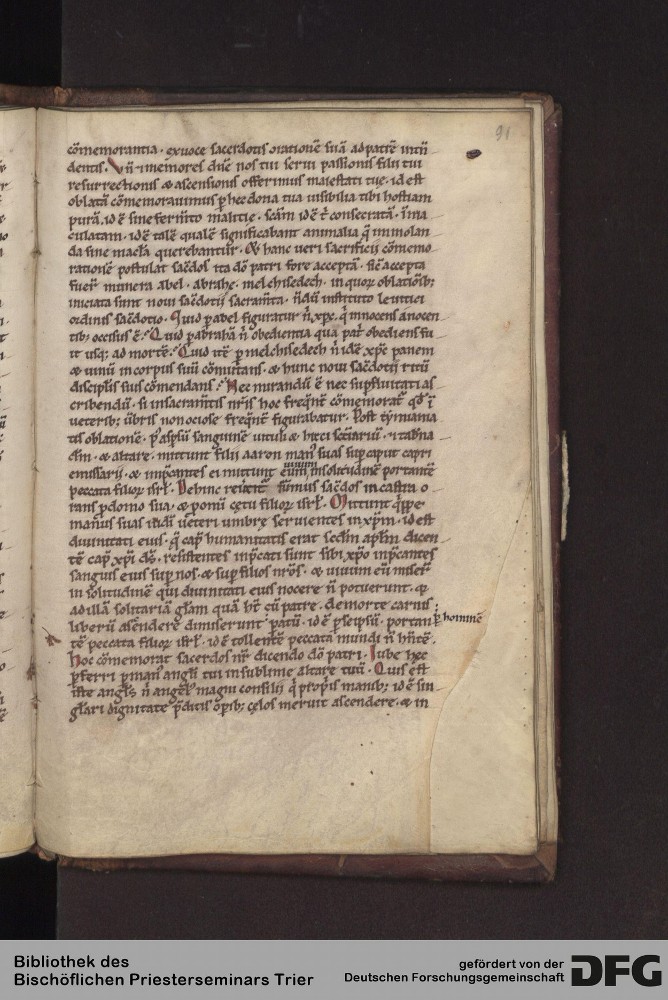 91
cōmemorantia · ex uoce sacerdotis orationē suā ad patrē intū
dentis · Vn̄ ⁊ memores dn̄e nos tui serui passionis filii tui
resurrectionis & ascensionis offerimus maiestati tuę · id est
oblatā cōmemorauimus p̱ hec dona tua uisibilia tibi hostiam
purā · id ē sine fermt̄o malitię · scām id ē t̄ consecratā · īma
culatam · id ē talē qualē significabant animalia q̄ immolan
da sine macl̄a querebantur · & hanc ueri sacrificii cōmemo
rationē postulat sac̄dos ita dō patri fore acceptā · sic̄ accepta
fuer̄ munera abel · abrahę · melchisedech · in quoꝝ oblationib;
iniciata sunt noui sac̄dotii sacram̄ta · n̄dū instituto leuitici
ordinis sac̄dotio · Quid p̱ abel figuratur n̄ xp̄c · q̄ innocens ā nocen
tib; occisus ē · Quid p̱ abrahā n̄ obedientia qua patⁱ obediens fu
it usq; ad mortē · Quid itē p̱ melchisedech n̄ idē xp̄c panem
& uinū in corpus suū cōmutans · & hunc noui sac̄dotii ritū
discipl̄is suis cōmendans · Nec mirandū ē nec sup̱fluitati as
cribendū · si in sacram̄tis nr̄is hoc freqn̄t cōmemorat̄ qd̄ ī
ueterib; ūbris non ociose freqn̄t figurabatur · Post
tis oblationē · p̱ asp̱sū sanguinē uituli & hirci · ⁊ tab̄na
clm̄ · & altare · mittunt filii aaron manꝰ suas sup̱ caput capri
emissarii · & imp̱cantes ei mittunt eūm in solitudinē portantē
peccata filioꝝ isrl̄ · Dehinc reūtit̄ sūmus sac̄dos in castra o
rans p̱ domo sua · & pomi cętu filioꝝ isrl̄ · Mittunt q̄ppe
manus suas iudei ueteri umbrę seruientes in xp̄m · id est
diuinitati eius · q̄ cap̄ humanitatis erat scdm̄ aplm̄ dicen
tē cap̄ xp̄i ds̄ · resistentes inp̱cati sunt sibi xp̄o inp̱cantes
sanguis eius sup̱ nos · & sup̱ filios nr̄os · & uiuum eū miser̄
in solitudinē qui diuinitati eius nocere n̄ potuerunt · &
ad illā solitariā gl̄am quā ht̄ cū patre · de morte carnis
liberū ascendere dimiserunt patū · id ē p̱ se ipsū · portan p̱ hominē
tē peccata filioꝝ isrl̄ · id ē tollentē peccata mundi n̄ hn̄tē ·
Hoc cōmemorat sacerdos nr̄ dicendo dō patri · Iube hec
p̱ferri p̱ manꝰ angl̄i tui in sublime altare tuū · Quis est
iste angl̄s n̄ angel̄ magni consilii q̄ prop̱is manib; id ē sin
gl̄ari dignitate p̄ditis op̱ib; cęlos meruit ascendere · & in
Bibliothek des
Bischöflichen Priesterseminars Trier
gefördert von der
Deutschen Forschungsgemeinschaft
DFG